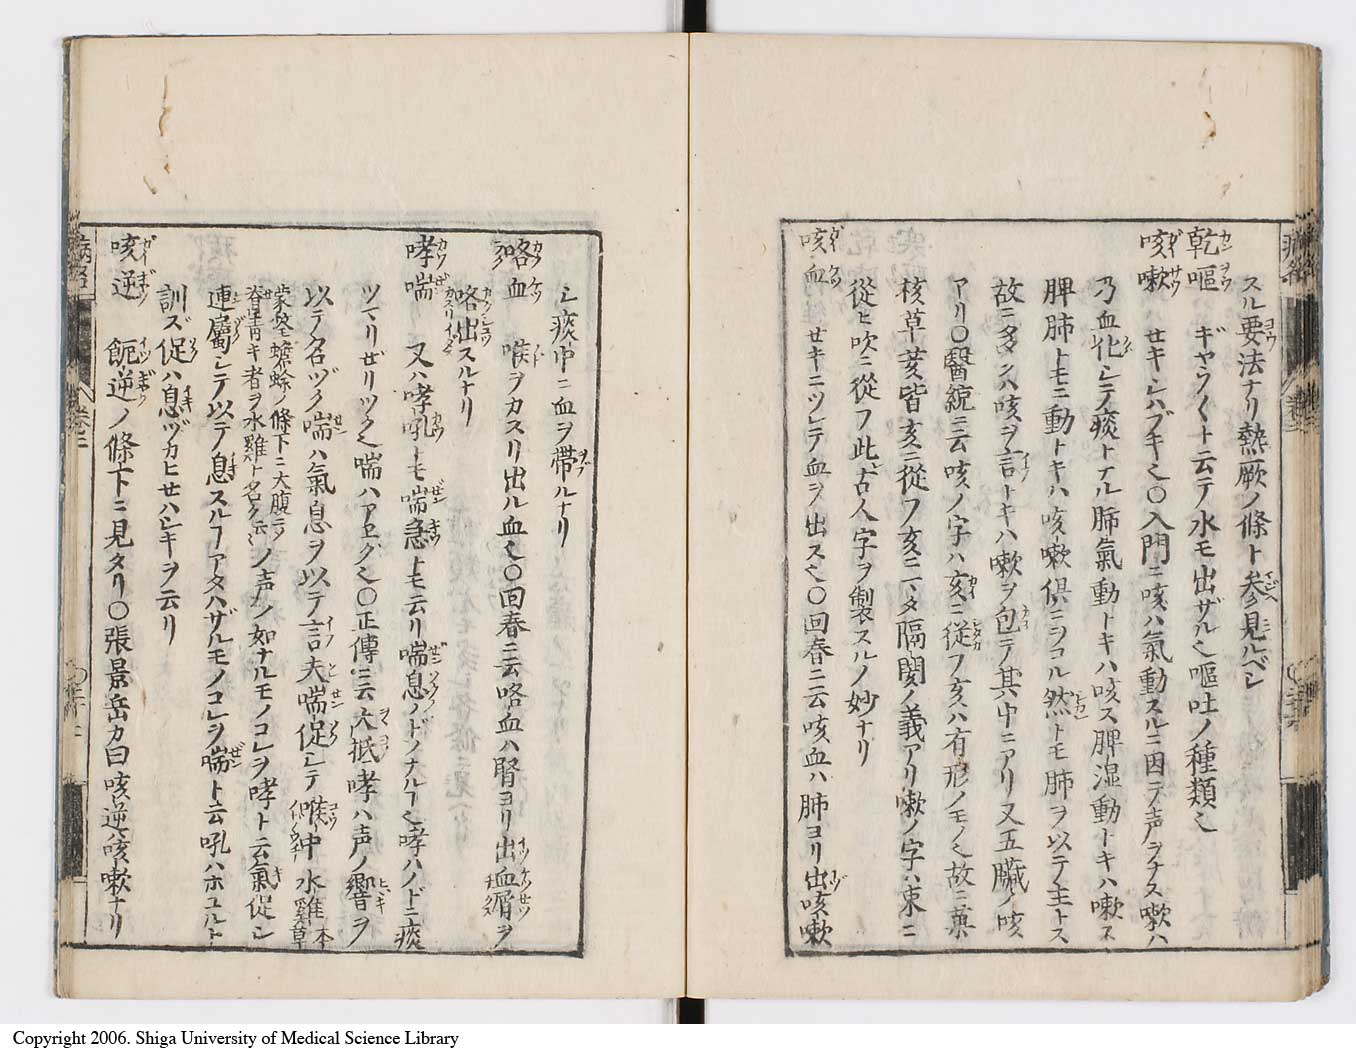 スル要法ナリ熱厥ノ條ト参見ルベシ
乾嘔 ギヤウ〱ト云テ水モ出ザル也嘔吐ノ種類也
咳嗽 せキシハブキ也〇入門ニ咳ハ氣動スルニ因テ声ヲナス嗽ハ
乃血化シテ痰トナル肺氣動トキハ咳ス脾湿動トキハ嗽ス
脾肺トモニ動トキハ咳嗽倶ニヲコル然トモ肺ヲ以テ主トス
故ニ多クハ咳ヲ言トキハ嗽ヲ包テ其中ニアリ又五臓ノ咳
アリ〇醫統ニ云咳ノ字ハ亥ニ従フ亥ハ有形ノモノ也故ニ
核草荄皆亥ニ從フ亥ニ又隔閡ノ義アリ嗽ノ字ハ束ニ
從ヒ吹ニ從フ此古人字ヲ製スルノ妙ナリ
咳血 せキニツレテ血ヲ出ス也〇回春ニ云咳血ハ肺ヨリ出咳嗽
シ痰中ニ血ヲ帯ルナリ
咯血 喉ヲカスリ出ル血也〇回春ニ云咯血ハ腎ヨリ出血屑ヲ
咯出スルナリ
哮喘 又ハ哮吼トモ喘急トモ云リ喘息ノドノナルヿ也哮ハノドニ痰
ツマリゼリツク也喘ハアエグ也〇正傳ニ云大抵哮ハ声ノ響ヲ
以テ名ヅク喘ハ氣息ヲ以テ言夫喘促シテ喉中水雞本草
蒙筌蟾蜍ノ條下ニ大腹ニシテ脊青キ者ヲ水雞ト名クト云ノ声ノ如ナルモノコレヲ哮ト云氣促シ
連屬シテ以テ息スルヿアタハザルモノコレヲ喘ト云吼ハホユルト
訓ズ促ハ息ヅカヒせハシキヲ云リ
咳逆 呃逆ノ條下ニ見タリ〇張景岳カ曰咳逆ハ咳嗽ナリ
巻二
Copyright 2006. Shiga University of Medical Science Library